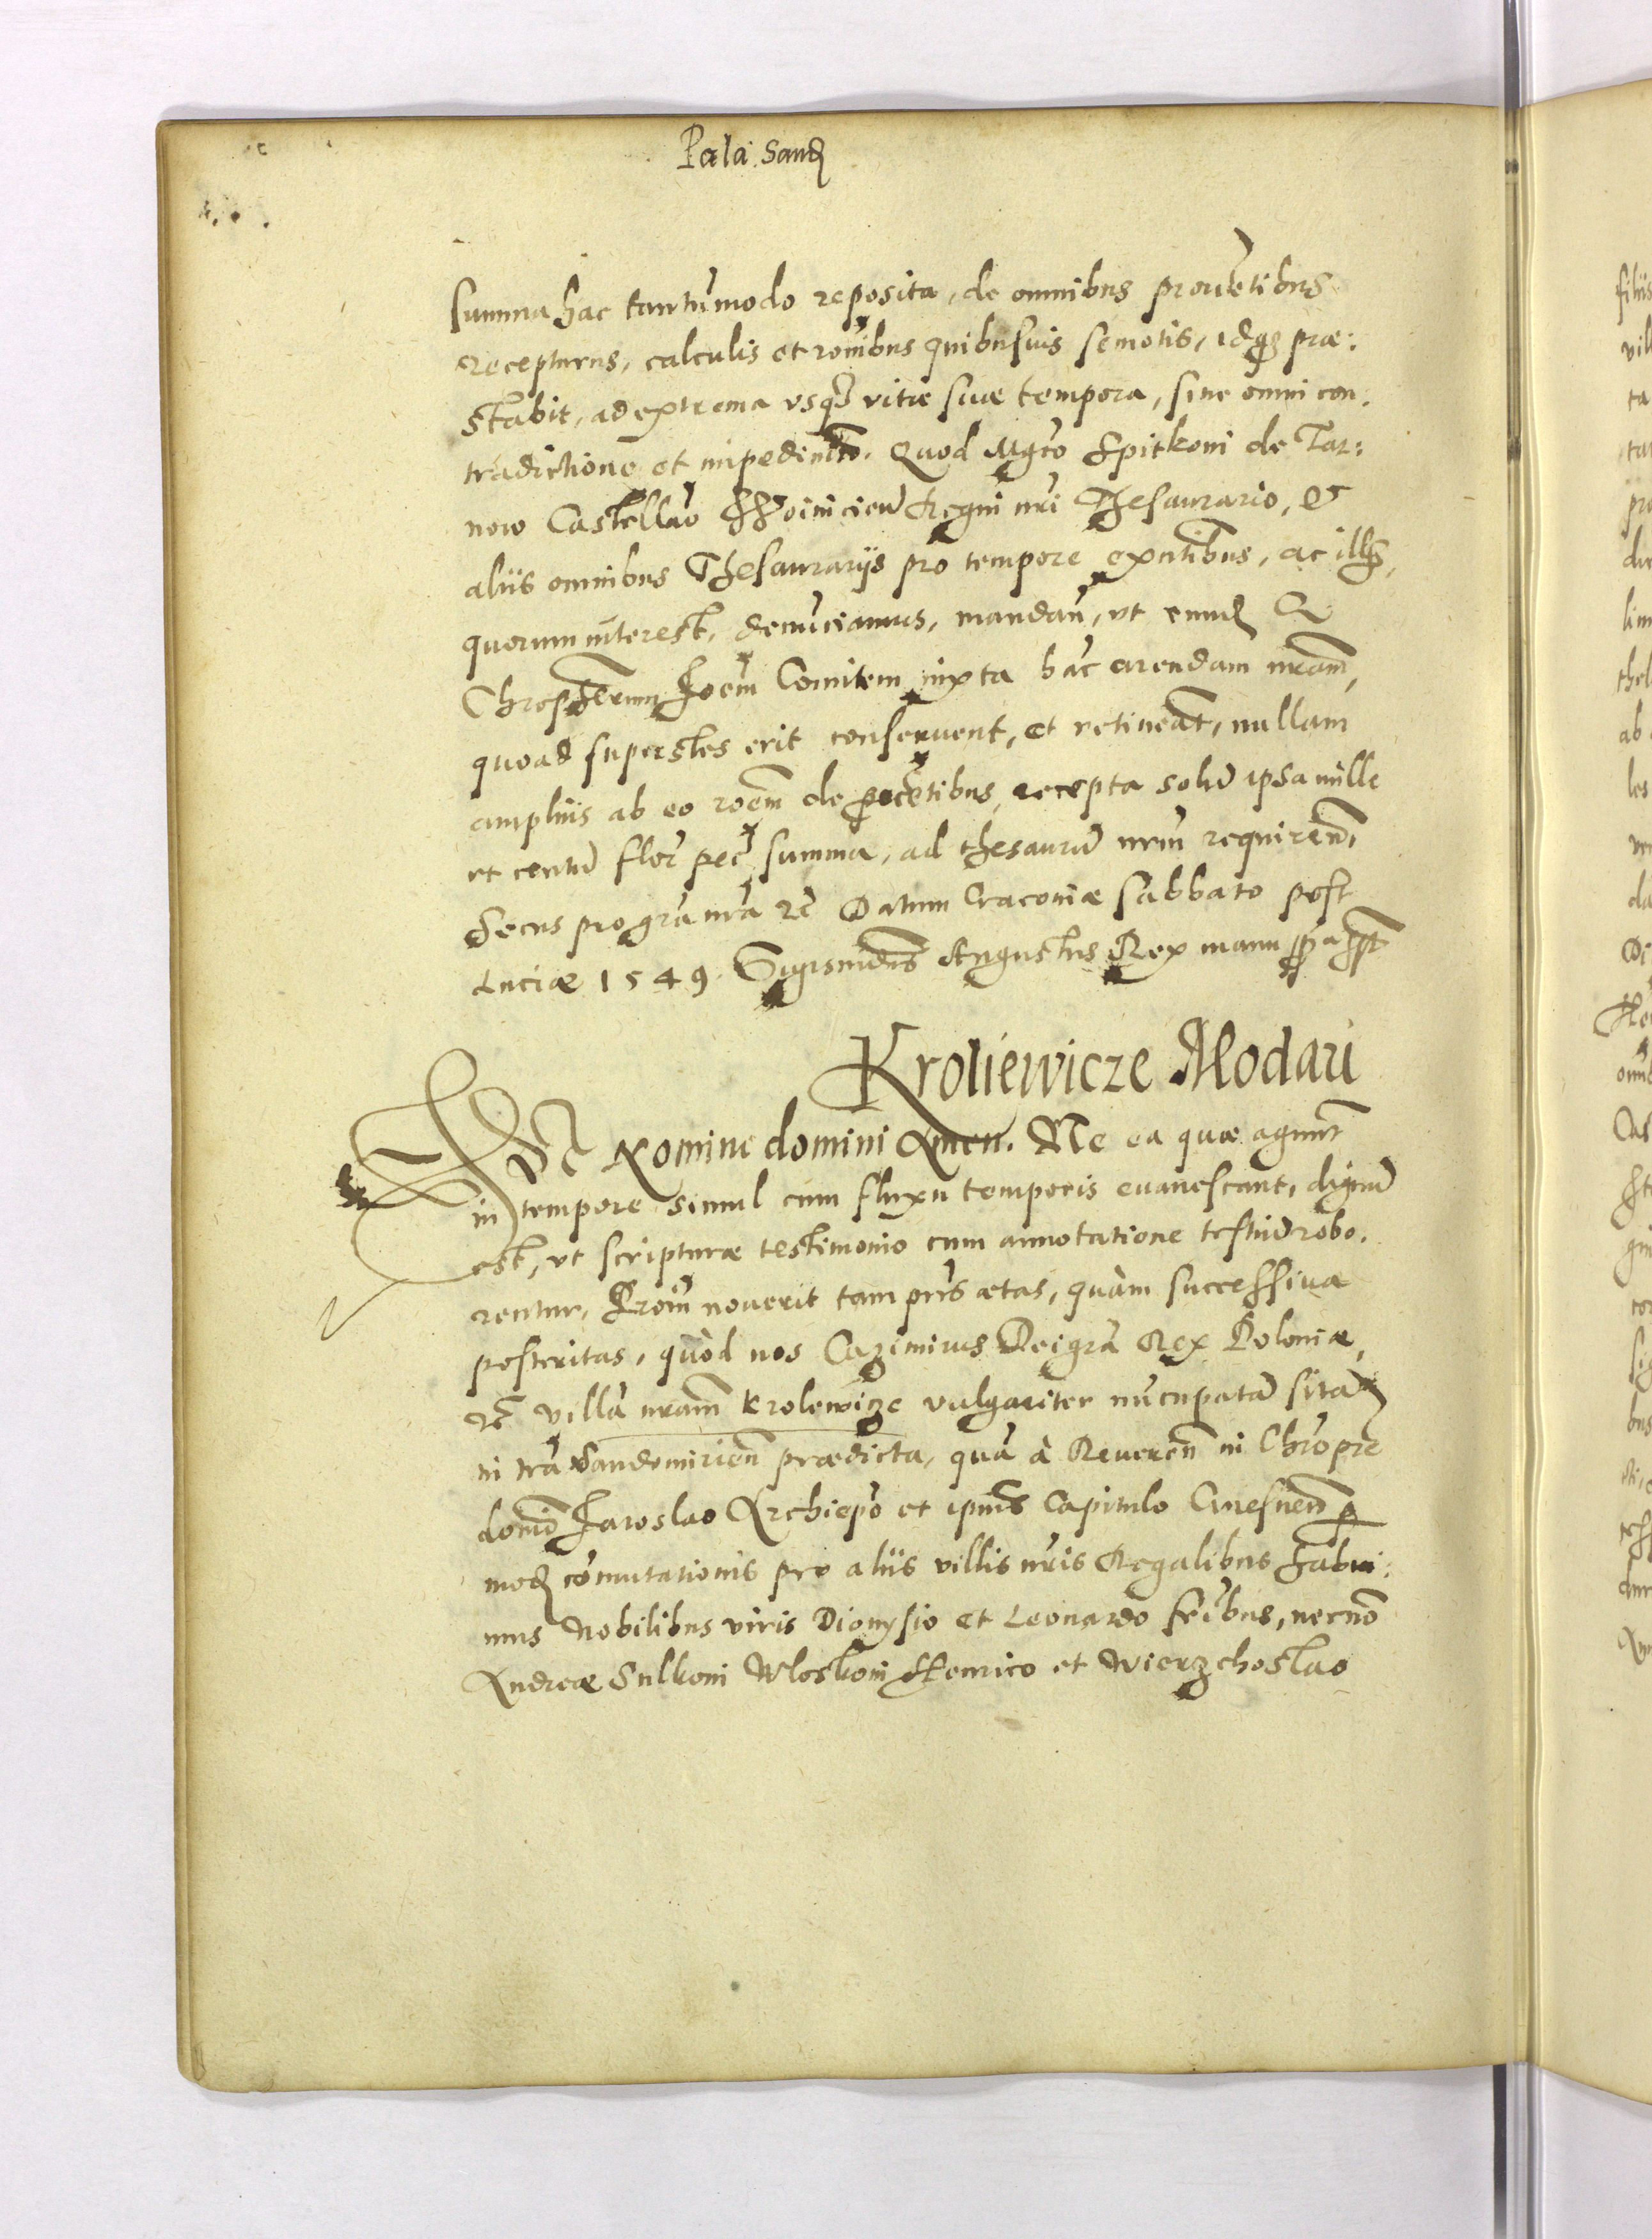 Pala: Sand
summa hac tantũmodo reposita, de omnibus prouẽtibus
recepturus, calculis et rõnibus quibusuis semotis, idqꝫ præ:
stabit, ad extrema vsqꝫ vitæ suæ tempora, sine omni con.
tradictione et impedimẽto. Quod Mgco Spitkoni de Tar:
now Castellão Woiniciẽn Regni nr̃i Thesaurario, et
aliis omnibus Thesaurarijs pro tempore exñtibus, ac illis,
quorum interest, denũciamus, mandañ, vt eund G
Chroshczium Joẽm Comitem iuxta hãc arendam nrãm,
quoad superstes erit conseruent, et retineãt, nullam
amplius ab eo rõem de ꝓuẽtibus, recepta solũ ipsa mille
et centũ flor̃ pec̃ summa, ad thesaurũ nrm̃ requireñ,
Secus pro grã nr̃a rc̃ Datum Cracouiæ Sabbato post
Luciæ 1549. Sigismũdus Augustus Rex manu ꝓpria sspt
Kroliewicze Modaũ
IN Nomine domini Amen. Ne ea quæ agunt̃
in tempore simul cum fluxu temporis euanescant, dignũ
est, vt scripturæ testimonio cum annotatione testiũ robo.
rentur, Proiñ nouerit tam pñs ætas, quàm successiua
posteritas, quòd nos Cazimirus Dei grã Rex Poloniæ,
rc̃ villã nrãm Krolewicze vulgariter nũcupatã sitã
in tr̃a Sandomirieñ prædicta, quã à Reuereñ in Chr̃o pr̃e
domĩo Jaroslao Archiepõ et ipius Capitulo Gnesneñ ꝑ
mod cõmutationis pro aliis villis nr̃is Regalibus habui:
mus Nobilibus viris Dionysio et Leonardo fr̃ibus, necnõ
Andreæ Sulkoni Wloskoni Henrico et Wierzchoslao